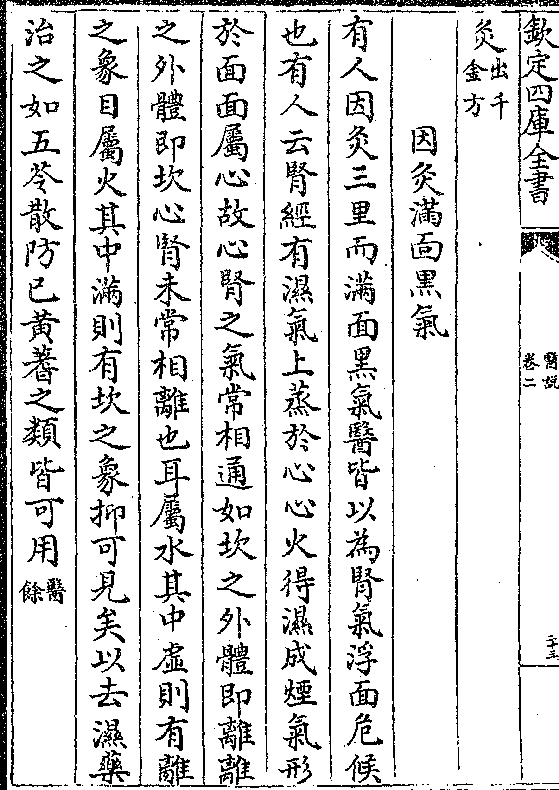 欽定四庫全書
醫說
卷二
二十三
灸出千金方
因灸滿面黑氣
有人因灸三里而滿面黑氣醫皆以為腎氣浮面危候
也有人云腎經有濕氣上蒸於心心火得濕成煙氣形
於面面屬心故心腎之氣常相通如坎之外體即離離
之外體即坎心腎未常相離也耳屬水其中虛則有離
之象目屬火其中滿則有坎之象抑可見矣以去濕藥
治之如五苓散防已黃蓍之類皆可用醫餘